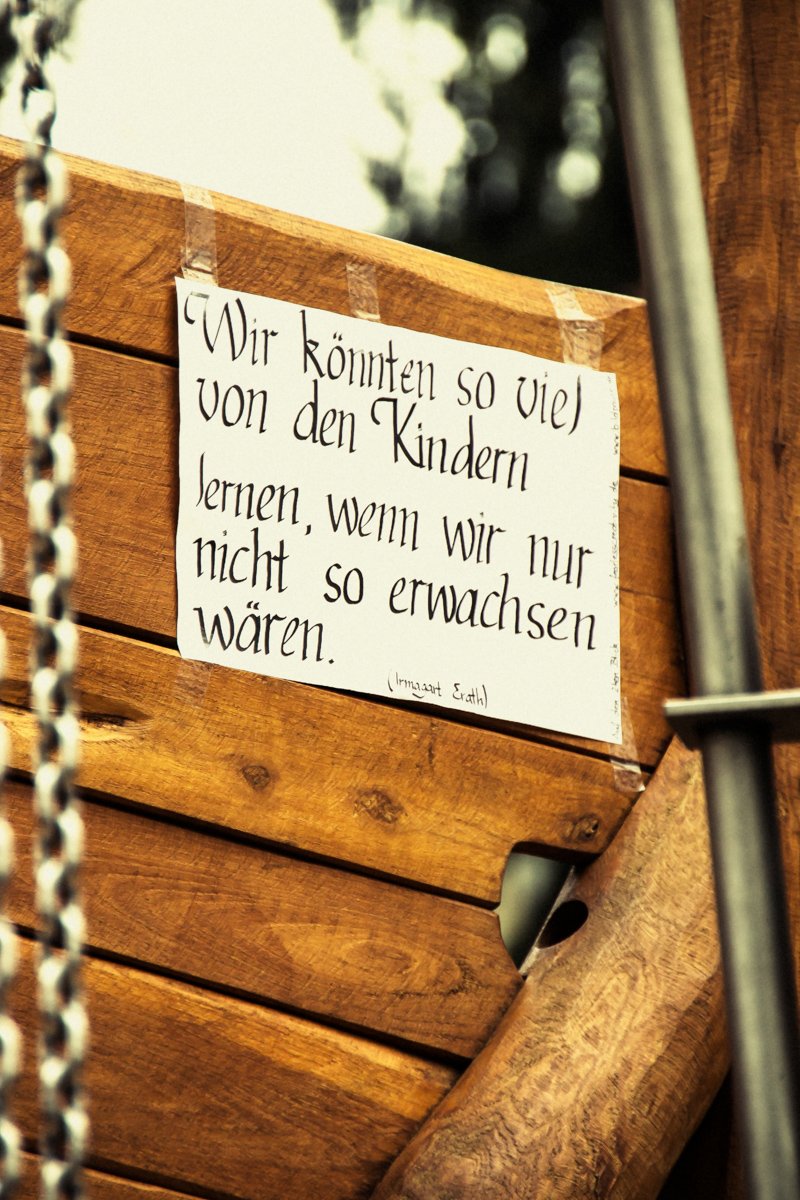 Wir könnten so viel
von den Kindern
lernen, wenn wir nur
nicht so erwachsen
wären.
(Irmgart Erath)